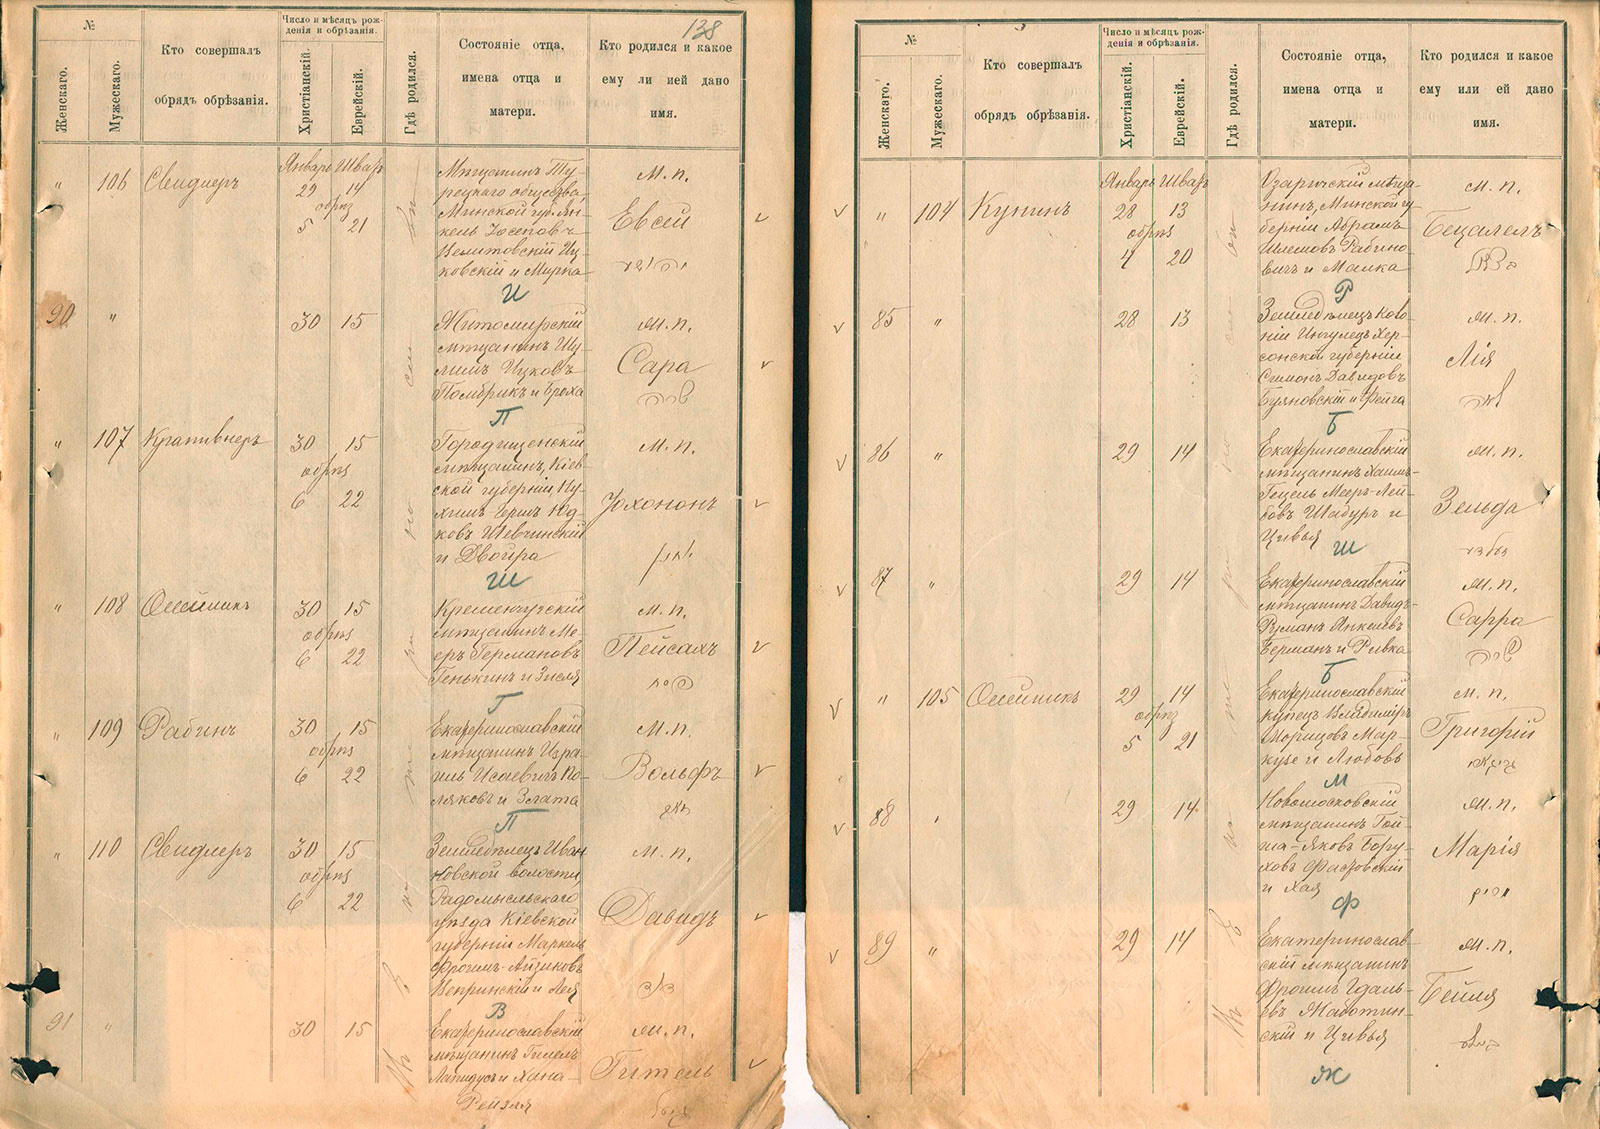 138
№
Женскаго.
Мужескаго.
Кто совершалъ
обрядъ обрѣзанія.
Число и мѣсяцъ рож-
денія и обрѣзанія.
Христіанскій.
Еврейскій.
Гдѣ родился.
Состояніе отца,
имена отца и
матери.
Кто родился и какое
ему ли ией дано
имя.
" 106 Свидлеръ
Январь Шватъ
29 14
обрѣз
5 21
Мѣщанинъ Ту-
рецкаго общества,
Минской губ. Ян-
кель Іосеповъ
ковскій и Мирка
м. п.
Евсей
И
90 "
30 15
Житомирскій
мѣщанинъ Шу-
лимъ Ицковъ
Помбрикъ и Броха
ж. п.
Сара
שרה
П
" 107 Крапивнеръ
30 15
обрѣз
6 22
Городищенскій
мѣщанинъ, Кіев-
ской губерніи Ну-
химъ-Гершъ Юд-
ковъ Шевчинскій
и Двойра
м. п.
Іохононъ
Ш
" 108 Олейникъ
30 15
обрѣз
6 22
Кременчугскій
мѣщанинъ Ме-
еръ Германовъ
Генькинъ и Зисля
м. п.
Пейсахъ
פסח
Г
" 109 Рабинъ
30 15
обрѣз
6 22
Екатеринославскій
мѣщанинъ Изра-
иль Исаевичъ По-
ляковъ и Злата
м. п.
Вольфъ
П
" 110 Свидлеръ
30 15
обрѣз
6 22
Земледѣлецъ Иван-
ковской волости,
Радомысльскаго
уѣзда Кіевской
губерніи Маркель
Фроимъ-Айзиковъ
Вепринскій и Лея
м. п.
Давидъ
דוד
В
91 "
30 15
Екатеринославскій
мѣщанинъ Гилель
Лапидусъ и Хана-
Рейзля
ж. п.
Гитель
№
Женскаго.
Мужескаго.
Кто совершалъ
обрядъ обрѣзанія.
Число и мѣсяцъ рож-
денія и обрѣзанія.
Христіанскій.
Еврейскій.
Гдѣ родился.
Состояніе отца,
имена отца и
матери.
Кто родился и какое
ему или ей дано
имя.
" 104 Кунинъ
Январь Шватъ
28 13
обрѣз
4 20
Озаричскій мѣща-
нинъ, Минской гу-
берніи Абрамъ
Шлемовъ Рабино-
вичъ и Малка
м. п.
Бецалелъ
Р
85 "
28 13
Земледѣлецъ коло-
ніи Ингулецъ Хер-
сонской губерніи
Симонъ Давидовъ
Буяновскій и Фейга
ж. п.
Лія
לאה
Б
86 "
29 14
Екатеринославскій
мѣщанинъ Хаимъ-
Гецель Мееръ-Лей-
бовъ Шабуръ и
Цивья
ж. п.
Зельда
Ш
87 "
29 14
Екатеринославскій
мѣщанинъ Давидъ-
Янкелевъ
Берманъ и Ривка
ж. п.
Сарра
שרה
Б
" 105 Олейникъ
29 14
обрѣз
5 21
Екатеринославскій
купецъ Владиміръ
Морицовъ Мар-
кузе и Любовь
м. п.
Григорій
М
88 "
29 14
Новомосковскій
мѣщанинъ Гой-
ша-Яковъ Бору-
ховъ Фастовскій
и Хая
ж. п.
Марія
Ф
89 "
29 14
Екатеринослав-
скій мѣщанинъ
Фроимъ Гдаль-
евъ Жаботин-
скій и Цивья
ж. п.
Бейля
Ж